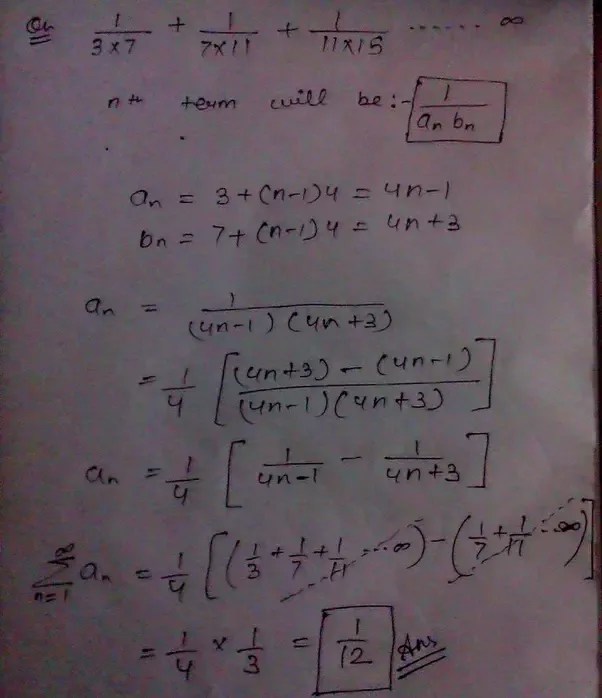 Qn 1/(3×7) + 1/(7×11) + 1/(11×15) ...... ∞
nth term will be:- 1/(an bn)
an = 3+(n-1)4 = 4n-1
bn = 7+(n-1)4 = 4n+3
an = 1/((4n-1)(4n+3))
= 1/4 [((4n+3) - (4n-1))/((4n-1)(4n+3))]
an = 1/4 [1/(4n-1) - 1/(4n+3)]
∞∑n=1 an = 1/4 [(1/3 + 1/7 + 1/11 .... ∞) - (1/7 + 1/11 ... ∞)]
= 1/4 × 1/3 = 1/12 Ans